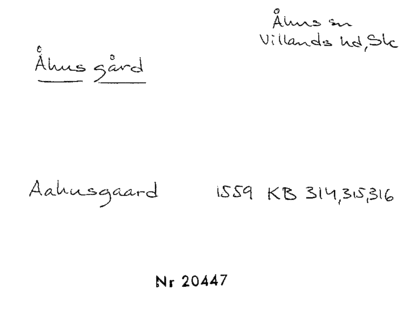 Åhus sn
Villands hd, Sk
Åhus gård
Aahusgaard 1559 KB 314, 315, 316
Nr 20447